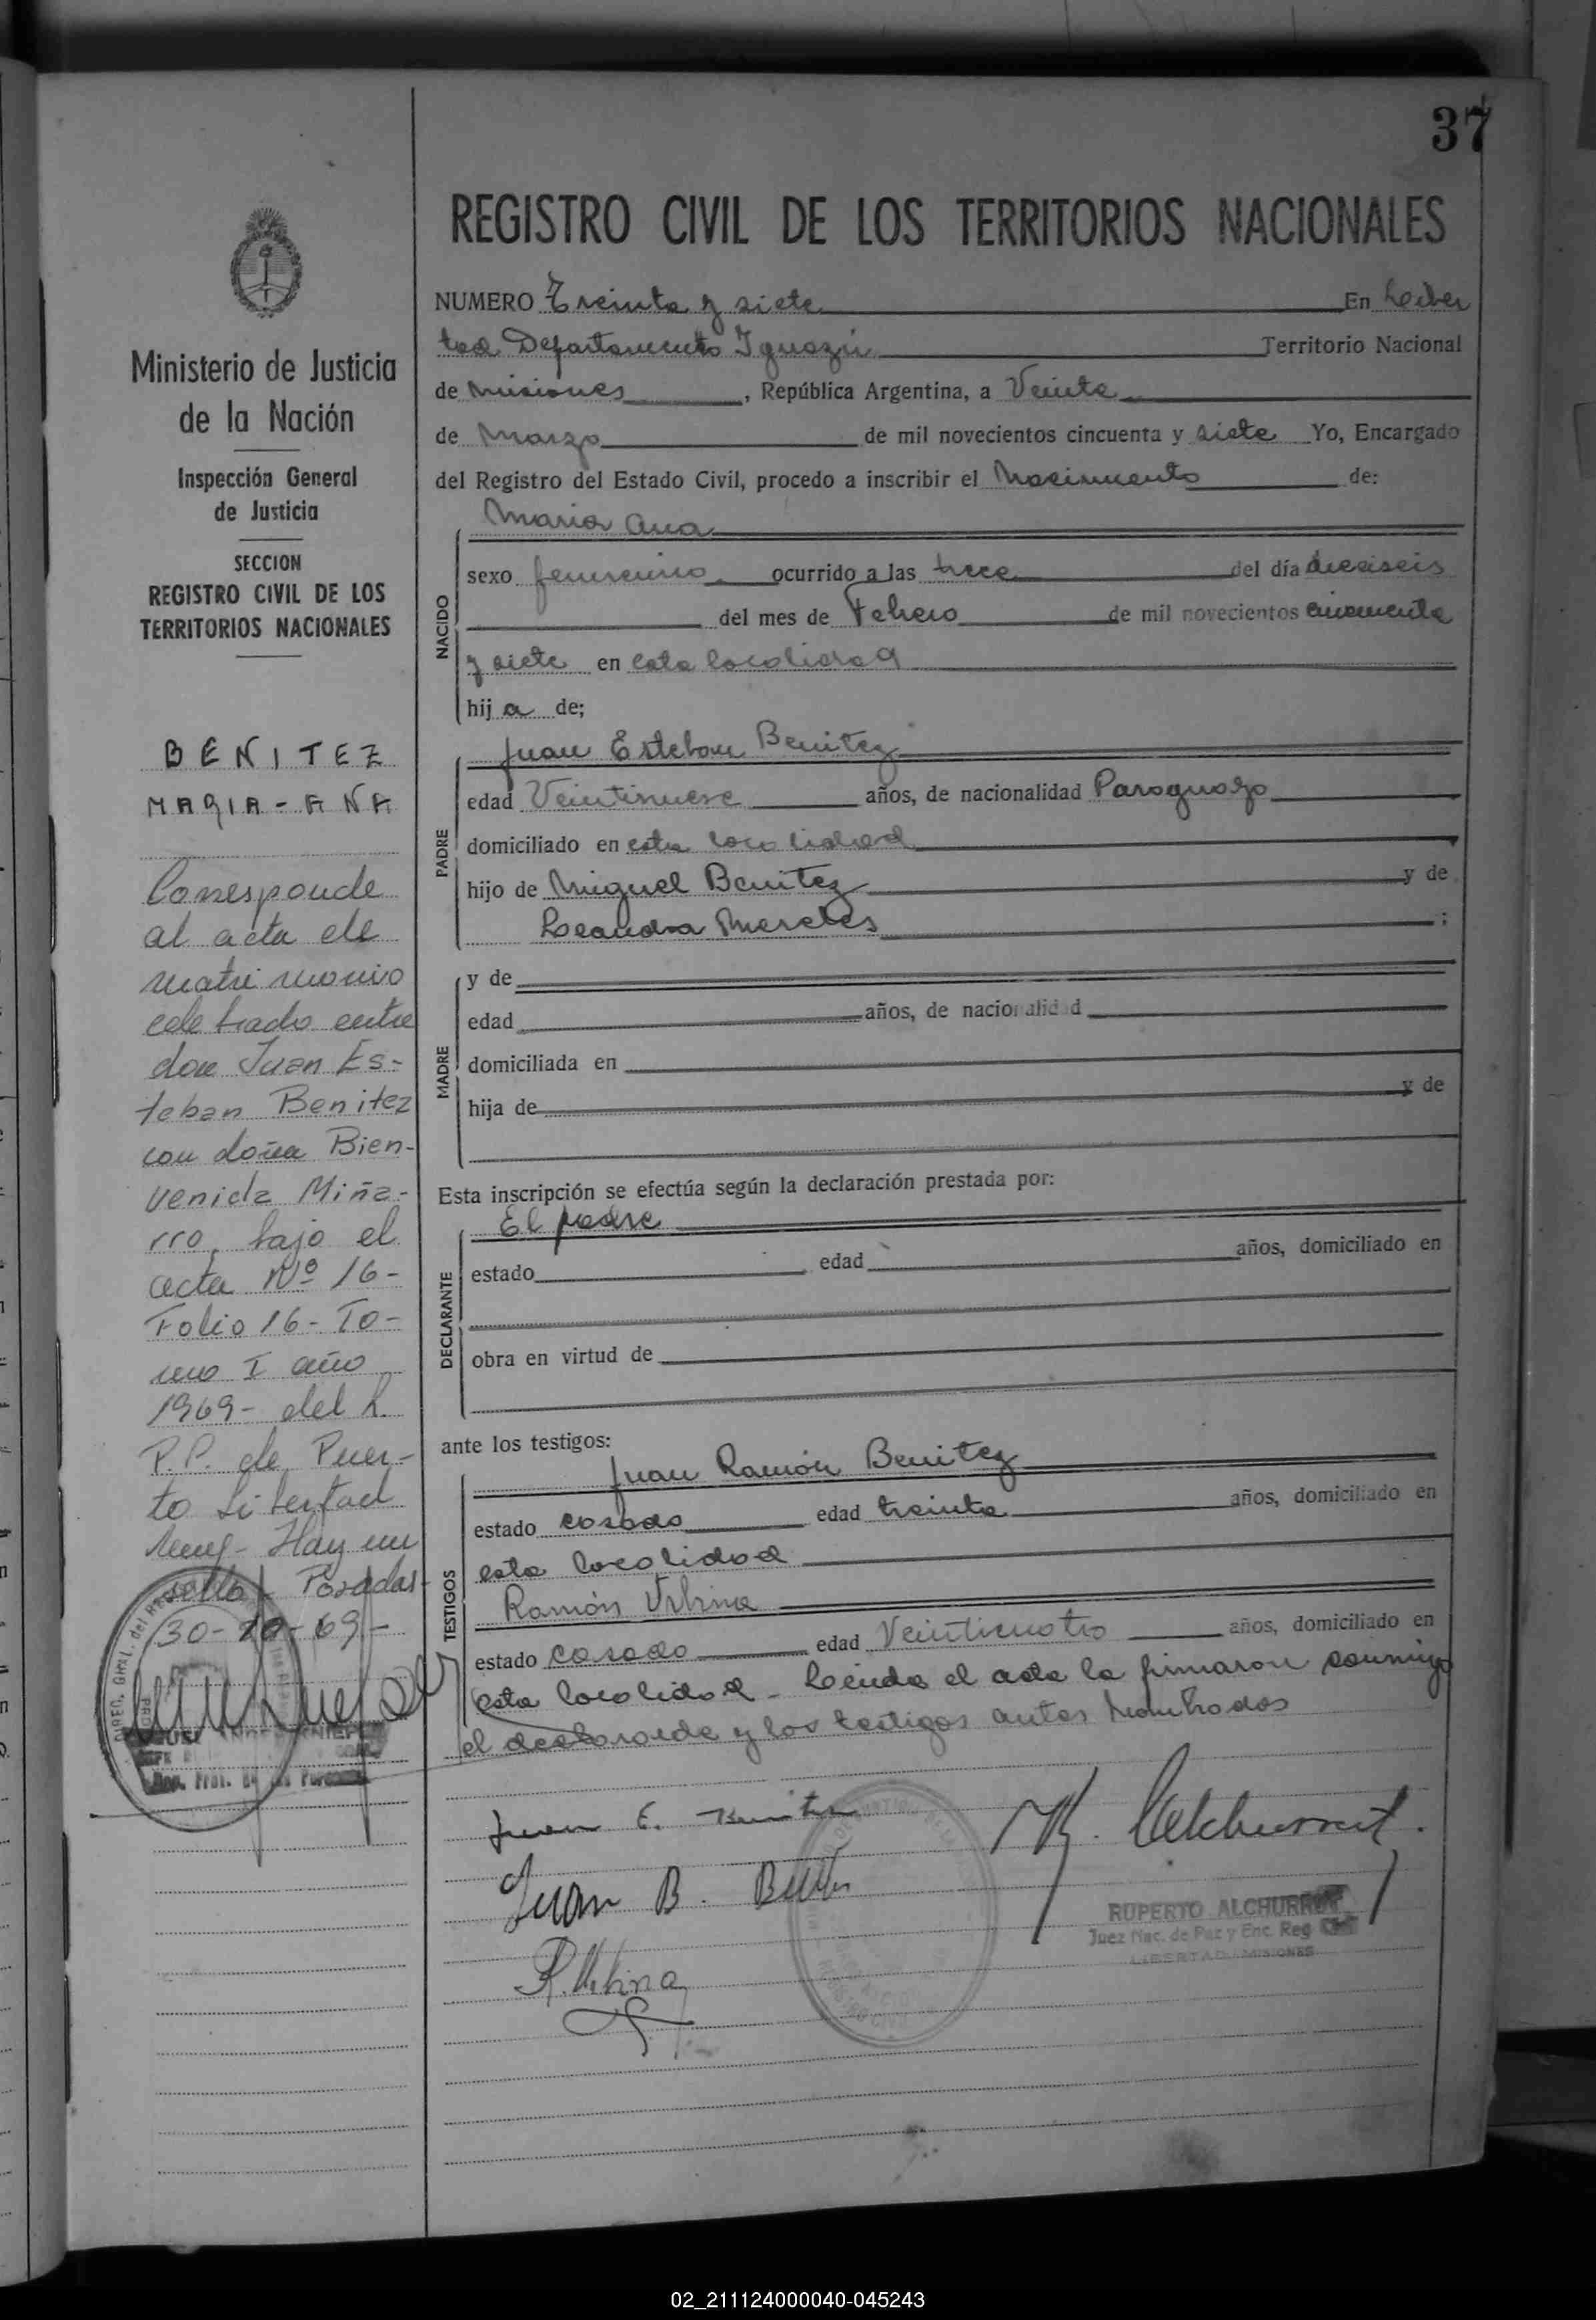 37
REGISTRO CIVIL DE LOS TERRITORIOS NACIONALES
NUMERO Treinta y siete En Liber
tad Departamento Iguazú Territorio Nacional
de Misiones, República Argentina, a Veinte
de Marzo de mil novecientos cincuenta y siete Yo, Encargado
del Registro del Estado Civil, procedo a inscribir el Nacimiento de:
NACIDO
Maria Ana
sexo femenino ocurrido a las trece del día dieciseis
del mes de Febrero de mil novecientos cincuenta
y siete en esta localidad
hija de;
PADRE
Juan Esteban Benitez
edad Veintinueve años, de nacionalidad Paraguayo
domiciliado en esta localidad
hijo de Miguel Benitez y de
Leandra Mereles ;
MADRE
y de
edad años, de nacionalidad
domiciliada en
hija de y de
Esta inscripción se efectúa según la declaración prestada por:
DECLARANTE
El padre
estado edad años, domiciliado en
obra en virtud de
ante los testigos:
TESTIGOS
Juan Ramón Benitez
estado casado edad treinta años, domiciliado en
esta localidad
Ramón Urbina
estado casado edad Veinticuatro años, domiciliado en
esta localidad - Leida el acta la firmaron conmigo
el declarante y los testigos antes nombrados
Juan E. Benitez
Juan B.
R. Urbina
R. Alchurrut.
RUPERTO ALCHURRUT
Juez Nac. de Paz y Enc. Reg
LIBERTAD (MISIONES
Ministerio de Justicia
de la Nación
Inspección General
de Justicia
SECCION
REGISTRO CIVIL DE LOS
TERRITORIOS NACIONALES
BENITEZ
MARIA-ANA
Corresponde
al acta de
matrimonio
celebrado entre
don Juan Es-
teban Benitez
con doña Bien-
venida Miña-
rro, bajo el
acta Nº 16-
Folio 16- To-
mo I año
1969- del R.
P.P. de Puer-
to Libertad
Hay un
sello. Posadas
30-10-69-
02_211124000040-045243